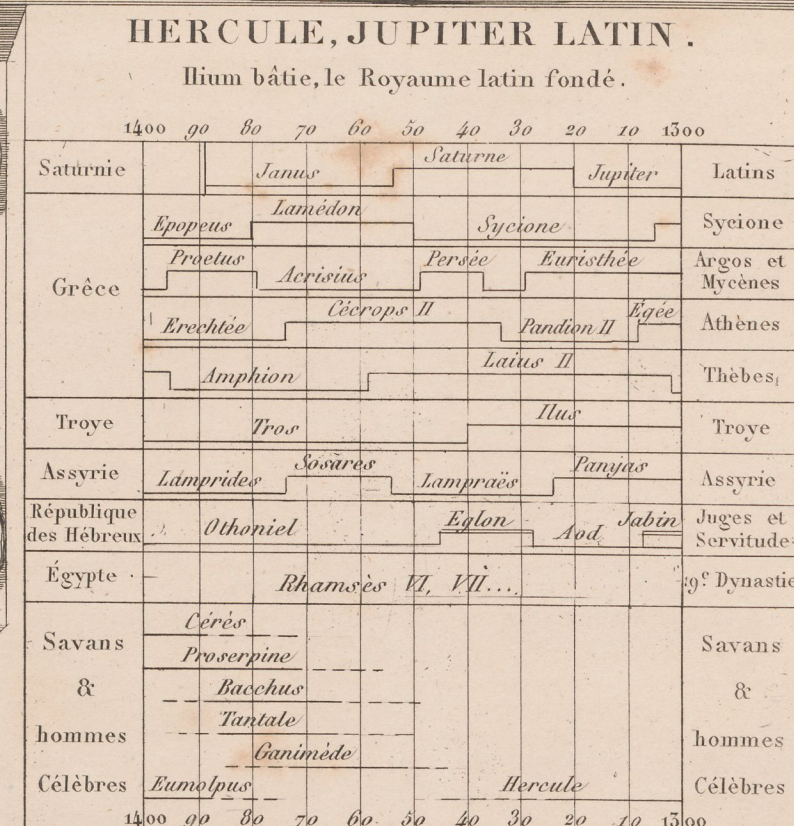 HERCULE, JUPITER LATIN.
Ilium bâtie, le Royaume latin fondé.
1400 90 80 70 60 50 40 30 20 10 1300
Saturnie Janus Saturne Jupiter Latins
Grêce
Epopeus Lamédon Sycione Sycione
Proetus Acrisius Persée Euristhée Argos et Mycènes
Erechtée Cécrops II Pandion II Egée Athènes
Amphion Laius II Thèbes
Troye Tros Ilus Troye
Assyrie Lamprides Sosares Lampraës Panyas Assyrie
République des Hébreux Othoniel Eglon Aod Jabin Juges et Servitude
Égypte Rhamsès VI, VII.... 19e Dynastie
Savans & hommes Célèbres
Cérés
Proserpine
Bacchus
Tantale
Ganimède
Eumolpus Hercule
Savans & hommes Célèbres
1400 90 80 70 60 50 40 30 20 10 1300